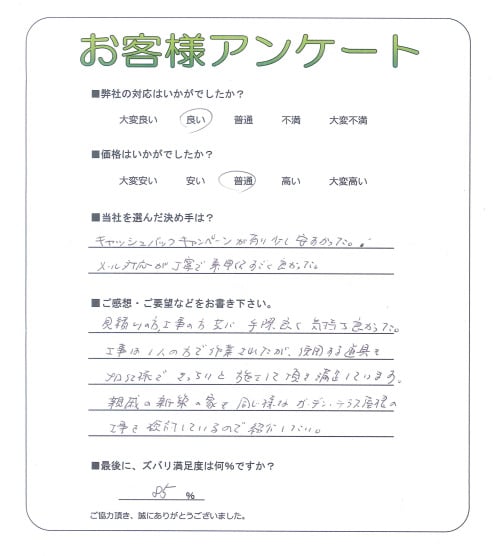 お客様アンケート
■弊社の対応はいかがでしたか？
大変良い 良い 普通 不満 大変不満
■価格はいかがでしたか？
大変安い 安い 普通 高い 大変高い
■当社を選んだ決め手は？
キャッシュバックキャンペーンが有り少し安かった。
メール対応が丁寧で素早くすごく良かった。
■ご感想・ご要望などをお書き下さい。
見積りの方、工事の方 共に 手際良く 気持ち良かった。
工事は1人の方で作業されたが、使用する道具も
きっちりと 施工して頂き満足しています。
親戚の新築の家も 同じ様な ガーデンテラス屋根の
工事を検討しているので紹介したい。
■最後に、ズバリ満足度は何％ですか？
85 ％
ご協力頂き、誠にありがとうございました。